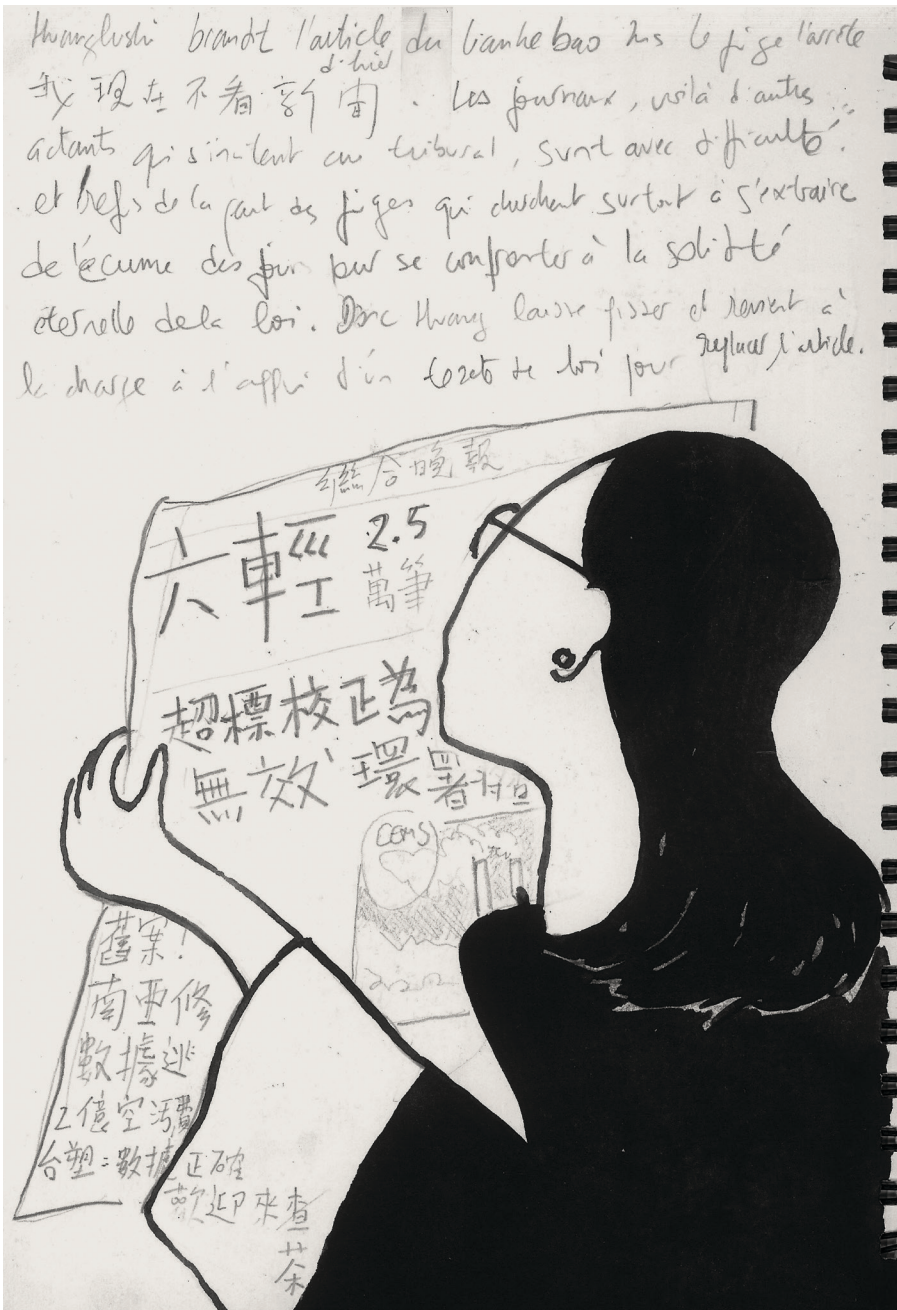 Huanglushi brandit l'article du lianhebao mais le juge l'arrête
d'hier
我現在不看新聞. Les journaux, voilà d'autres
actants qui s'invitent au tribunal, sunt avec difficulté.
et refus de la part des juges qui cherchent surtout à s'extraire
de l'écume des jours pour se confronter à la solidité
éternelle de la loi. Donc Huang laisse pisser et revient à
la charge à l'affût d'un texte de loi pour replacer l'article.
聯合晚報
六輕 2.5
萬筆
超標校正為
無效 環署
CEMS
舊案!
南亞修
數據逃
2億空污費
台塑:數據正確
歡迎來查
茶